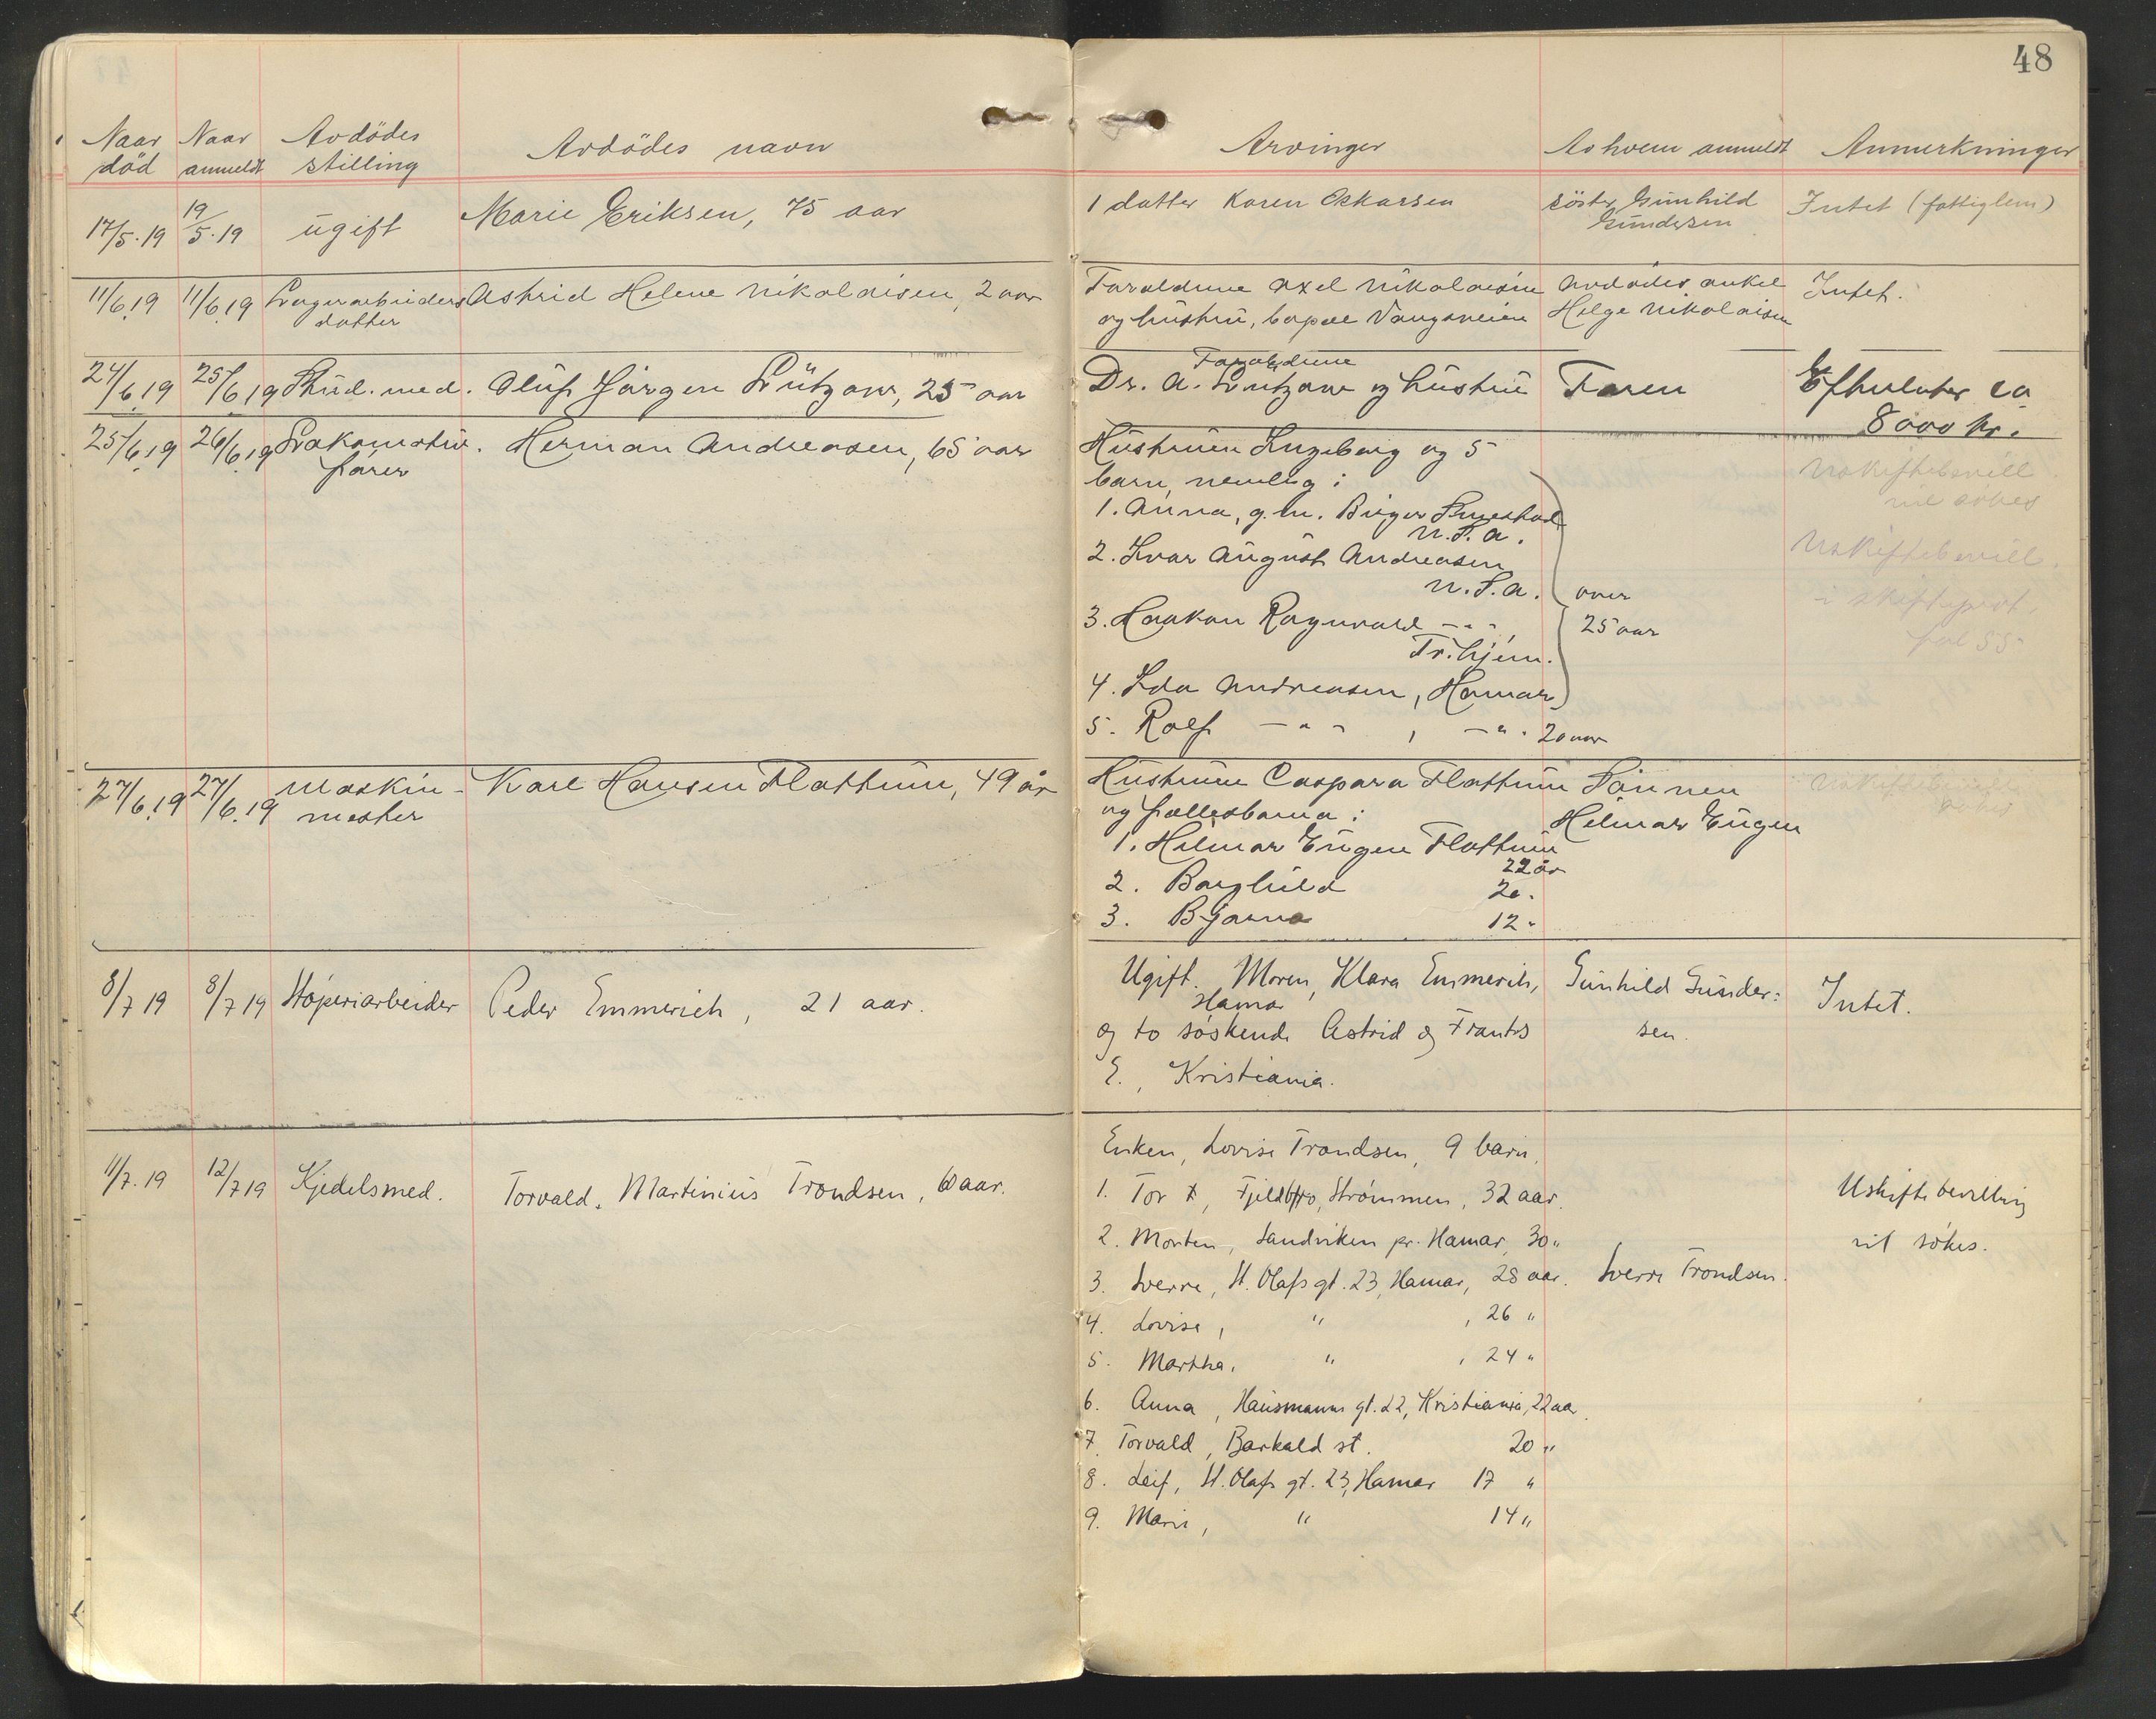 48
Naar død
Naar anmeldt
Avdödes stilling
Avdödes navn
Arvinger
Av hvem anmeldt
Anmerkninger
17/5.19 19/5.19 ugift Marie Eriksen, 75 aar
1 datter Karen Oskarsen
söster Gunhild
Gundersen
Intet (fattiglem)
11/6.19 11/6.19 Lagerarbeiders
datter
Astrid Helene Nikolaisen, 2 aar
Forældrene Axel Nikolaisen
og hustru, bopæl Vangsveien
Avdødes onkel
Helge Nikolaisen
Intet.
24/6.19 25/6.19 Stud. med. Oluf Jørgen Lützow, 25 aar
Forældrene
Dr. A. Lützow og hustru
Faren
Efterlater ca
8000 kr.
25/6.19 26/6.19 Lokomotiv.
fører
Herman Andreasen, 65 aar
Hustruen Ingeborg og 5
barn, nemlig:
1. Anna, g.m. Birger
U.S.A.
2. Ivar August Andreasen
U.S.A.
3. Haakon Ragnvald -"-,
Tr.hjem.
4. Ida Andreasen, Hamar
5. Rolf -"- , -"- 20 aar
over
25 aar
Uskiftebevill.
vil søkes
Uskiftebevill.
i skifteprot.
fol 55
27/6.19 27/6.19 Maskin-
mester
Karl Hansen Flattum, 49 år
Hustruen Caspara Flattum
og fællesbarna:
1. Hilmar Eugen Flattum
22 år
2. Borghild 20 "
3. Bjarne 12 "
Sønnen
Hilmar Eugen
8/7 19 8/7 19 Støperiarbeider Peder Emmerich, 21 aar.
Ugift. Moren, Klara Emmerich,
Hamar
og to søskende Astrid og Frants
E., Kristiania.
Gunhild Gunder:
sen.
Intet.
11/7.19 12/7 19 Kjedelsmed. Torvald. Martinius Trondsen, 60 aar.
Enken, Lovise Trondsen, 9 barn,
1. Tor F, Fjeldbo, Strømmen, 32 aar.
2. Morten, Sandviken pr. Hamar, 30 "
3. Sverre, St. Olafs gt. 23, Hamar, 28 aar.
4. Lovise, " , 26 "
5. Martha, " , 24 "
6. Anna, Hausmanns gt. 22, Kristiania, 22 aar.
7. Torvald, Barkald st. 20 "
8. Leif, St. Olafs gt. 23, Hamar 17 "
9. Marie, " 14 "
Sverre Trondsen.
Uskiftebevilling
vil søkes.